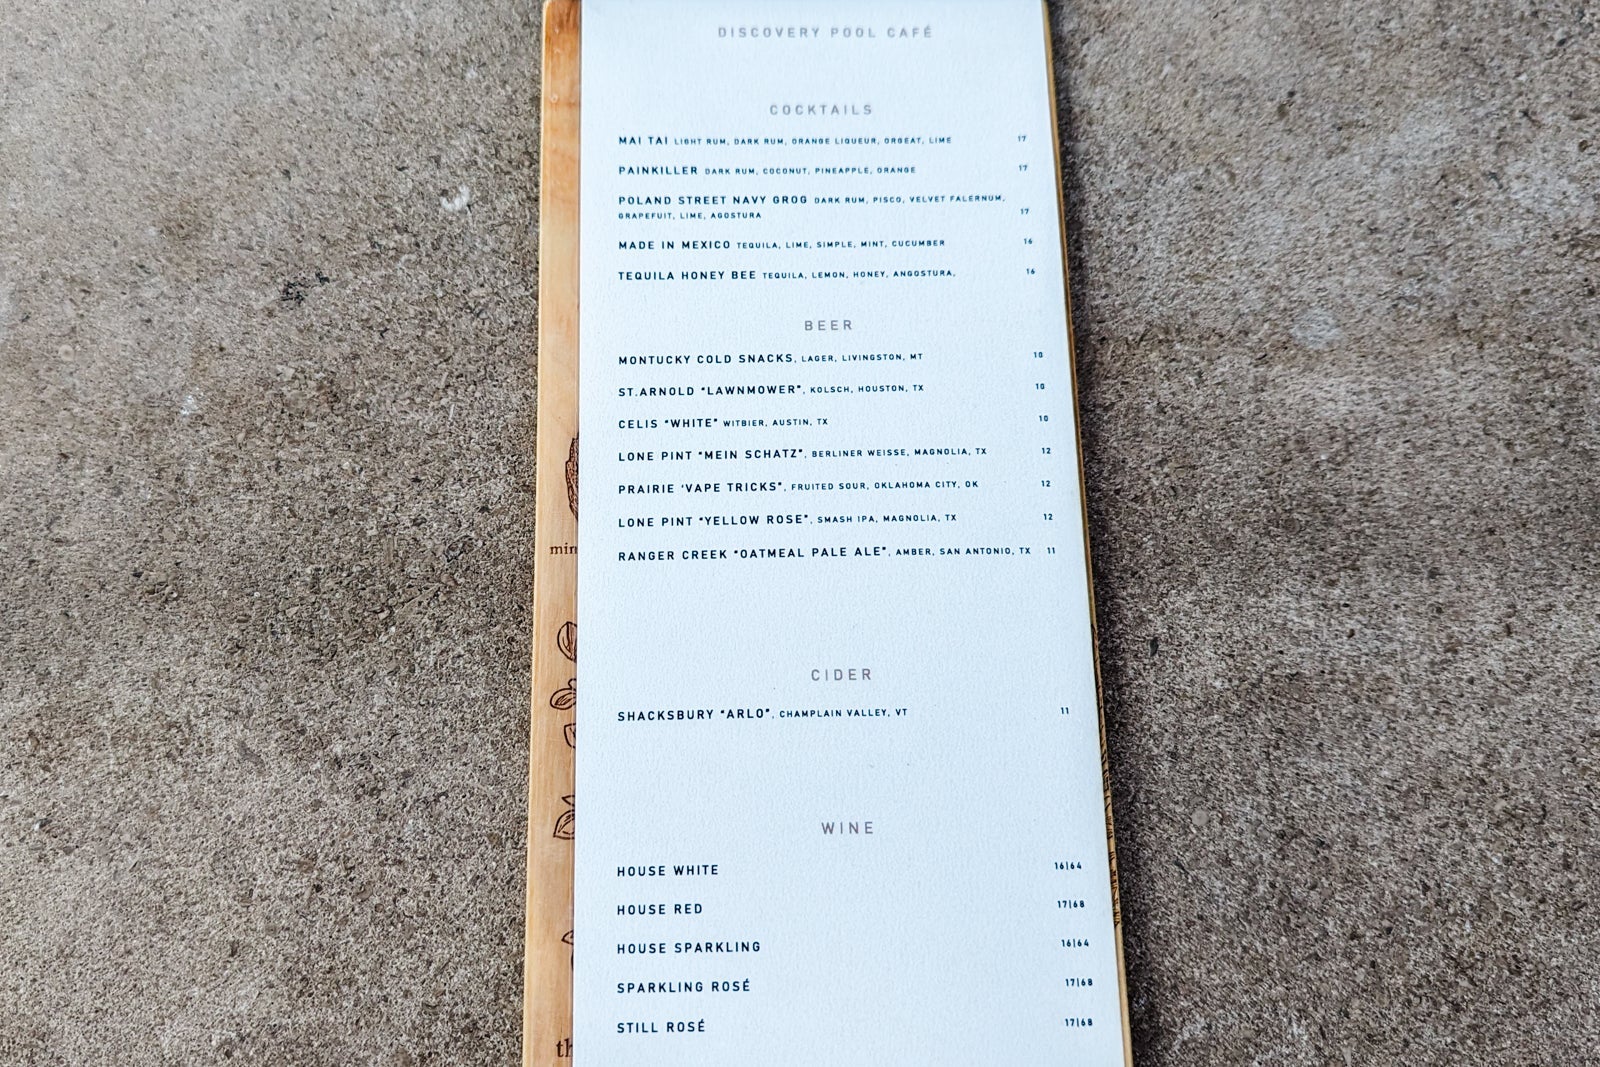 DISCOVERY POOL CAFÉ
COCKTAILS
MAI TAI LIGHT RUM, DARK RUM, ORANGE LIQUEUR, ORGEAT, LIME 17
PAINKILLER DARK RUM, COCONUT, PINEAPPLE, ORANGE 17
POLAND STREET NAVY GROG DARK RUM, PISCO, VELVET FALERNUM,
GRAPEFUIT, LIME, AGOSTURA 17
MADE IN MEXICO TEQUILA, LIME, SIMPLE, MINT, CUCUMBER 16
TEQUILA HONEY BEE TEQUILA, LEMON, HONEY, ANGOSTURA, 16
BEER
MONTUCKY COLD SNACKS, LAGER, LIVINGSTON, MT 10
ST.ARNOLD "LAWNMOWER", KOLSCH, HOUSTON, TX 10
CELIS "WHITE" WITBIER, AUSTIN, TX 10
LONE PINT "MEIN SCHATZ", BERLINER WEISSE, MAGNOLIA, TX 12
PRAIRIE 'VAPE TRICKS", FRUITED SOUR, OKLAHOMA CITY, OK 12
LONE PINT "YELLOW ROSE", SMASH IPA, MAGNOLIA, TX 12
RANGER CREEK "OATMEAL PALE ALE", AMBER, SAN ANTONIO, TX 11
CIDER
SHACKSBURY "ARLO", CHAMPLAIN VALLEY, VT 11
WINE
HOUSE WHITE 16|64
HOUSE RED 17|68
HOUSE SPARKLING 16|64
SPARKLING ROSÉ 17|68
STILL ROSÉ 17|68